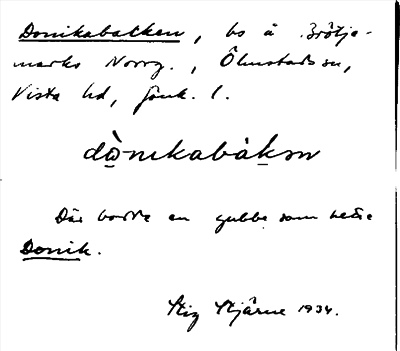 Donikabacken, bs å Brötje-
marks Norrg., Ölmstads sn,
Vista hd, Jönk. l.
dònikabàkən
Där bodde en gubbe som hette
Donik.
Stig Stjärne 1934.